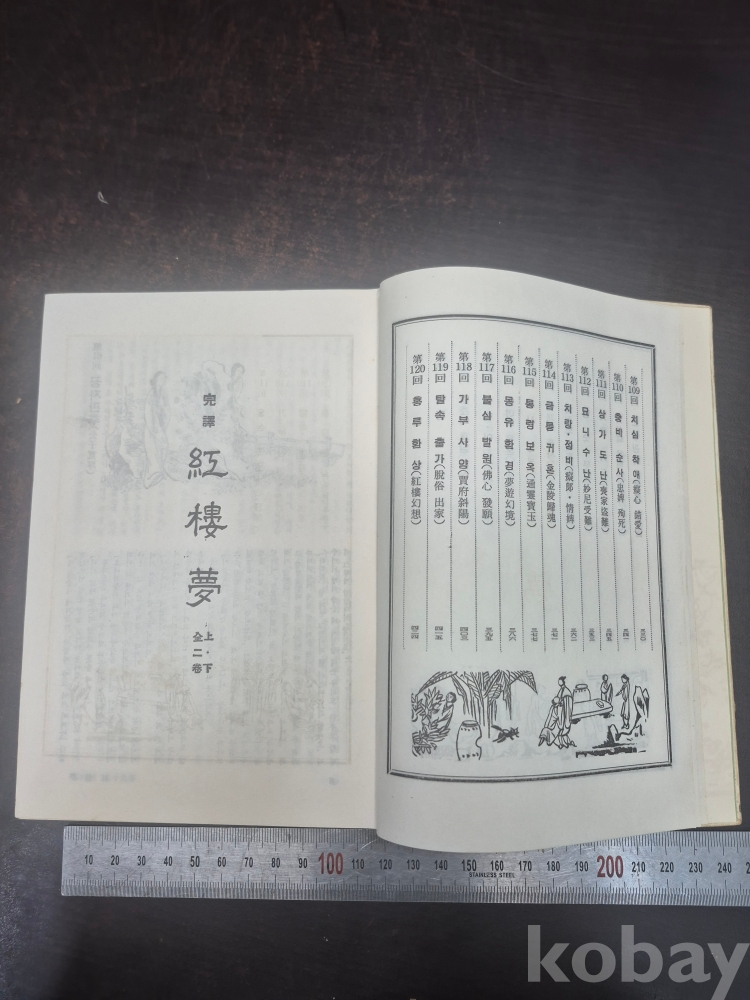 第109回 치심 착애(癡心 錯愛)
第110回 충비 순사(忠婢 殉死)
第111回 상가 도난(喪家盜難)
第112回 묘니 수난(妙尼受難)
第113回 치랑·정비(癡郞·情婢)
第114回 금릉 귀혼(金陵歸魂)
第115回 통령 보옥(通靈寶玉)
第116回 몽유 환경(夢遊幻境)
第117回 불심 발원(佛心 發願)
第118回 가부 사양(賈府斜陽)
第119回 탈속 출가(脫俗 出家)
第120回 홍루 환상(紅樓幻想)
完譯
紅樓夢
上·下
全二卷
10 20 30 40 50 60 70 80 90 100 110 120 130 140 150 160 170 180 190 200 210 220 230 240
STAINLESS STEEL
kobay